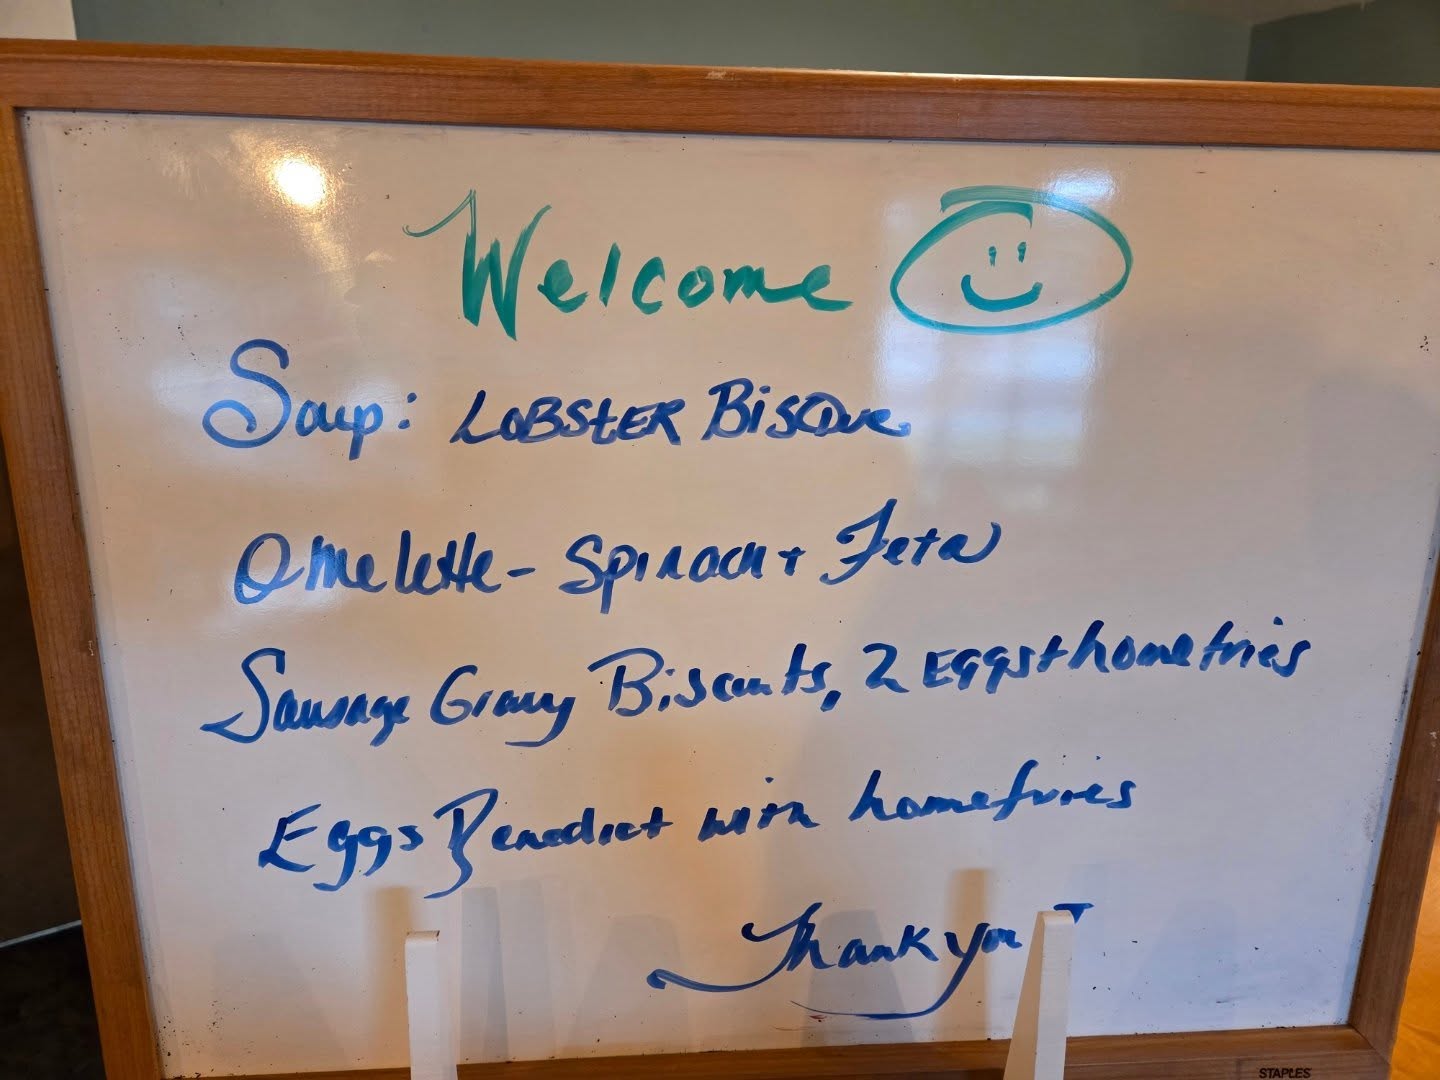 Welcome
Soup: LOBSTER BISQUE
Omelette - Spinach + Feta
Sausage Gravy Biscuits, 2 EGGS + homefries
Eggs Benedict with homefries
Thank you
STAPLES